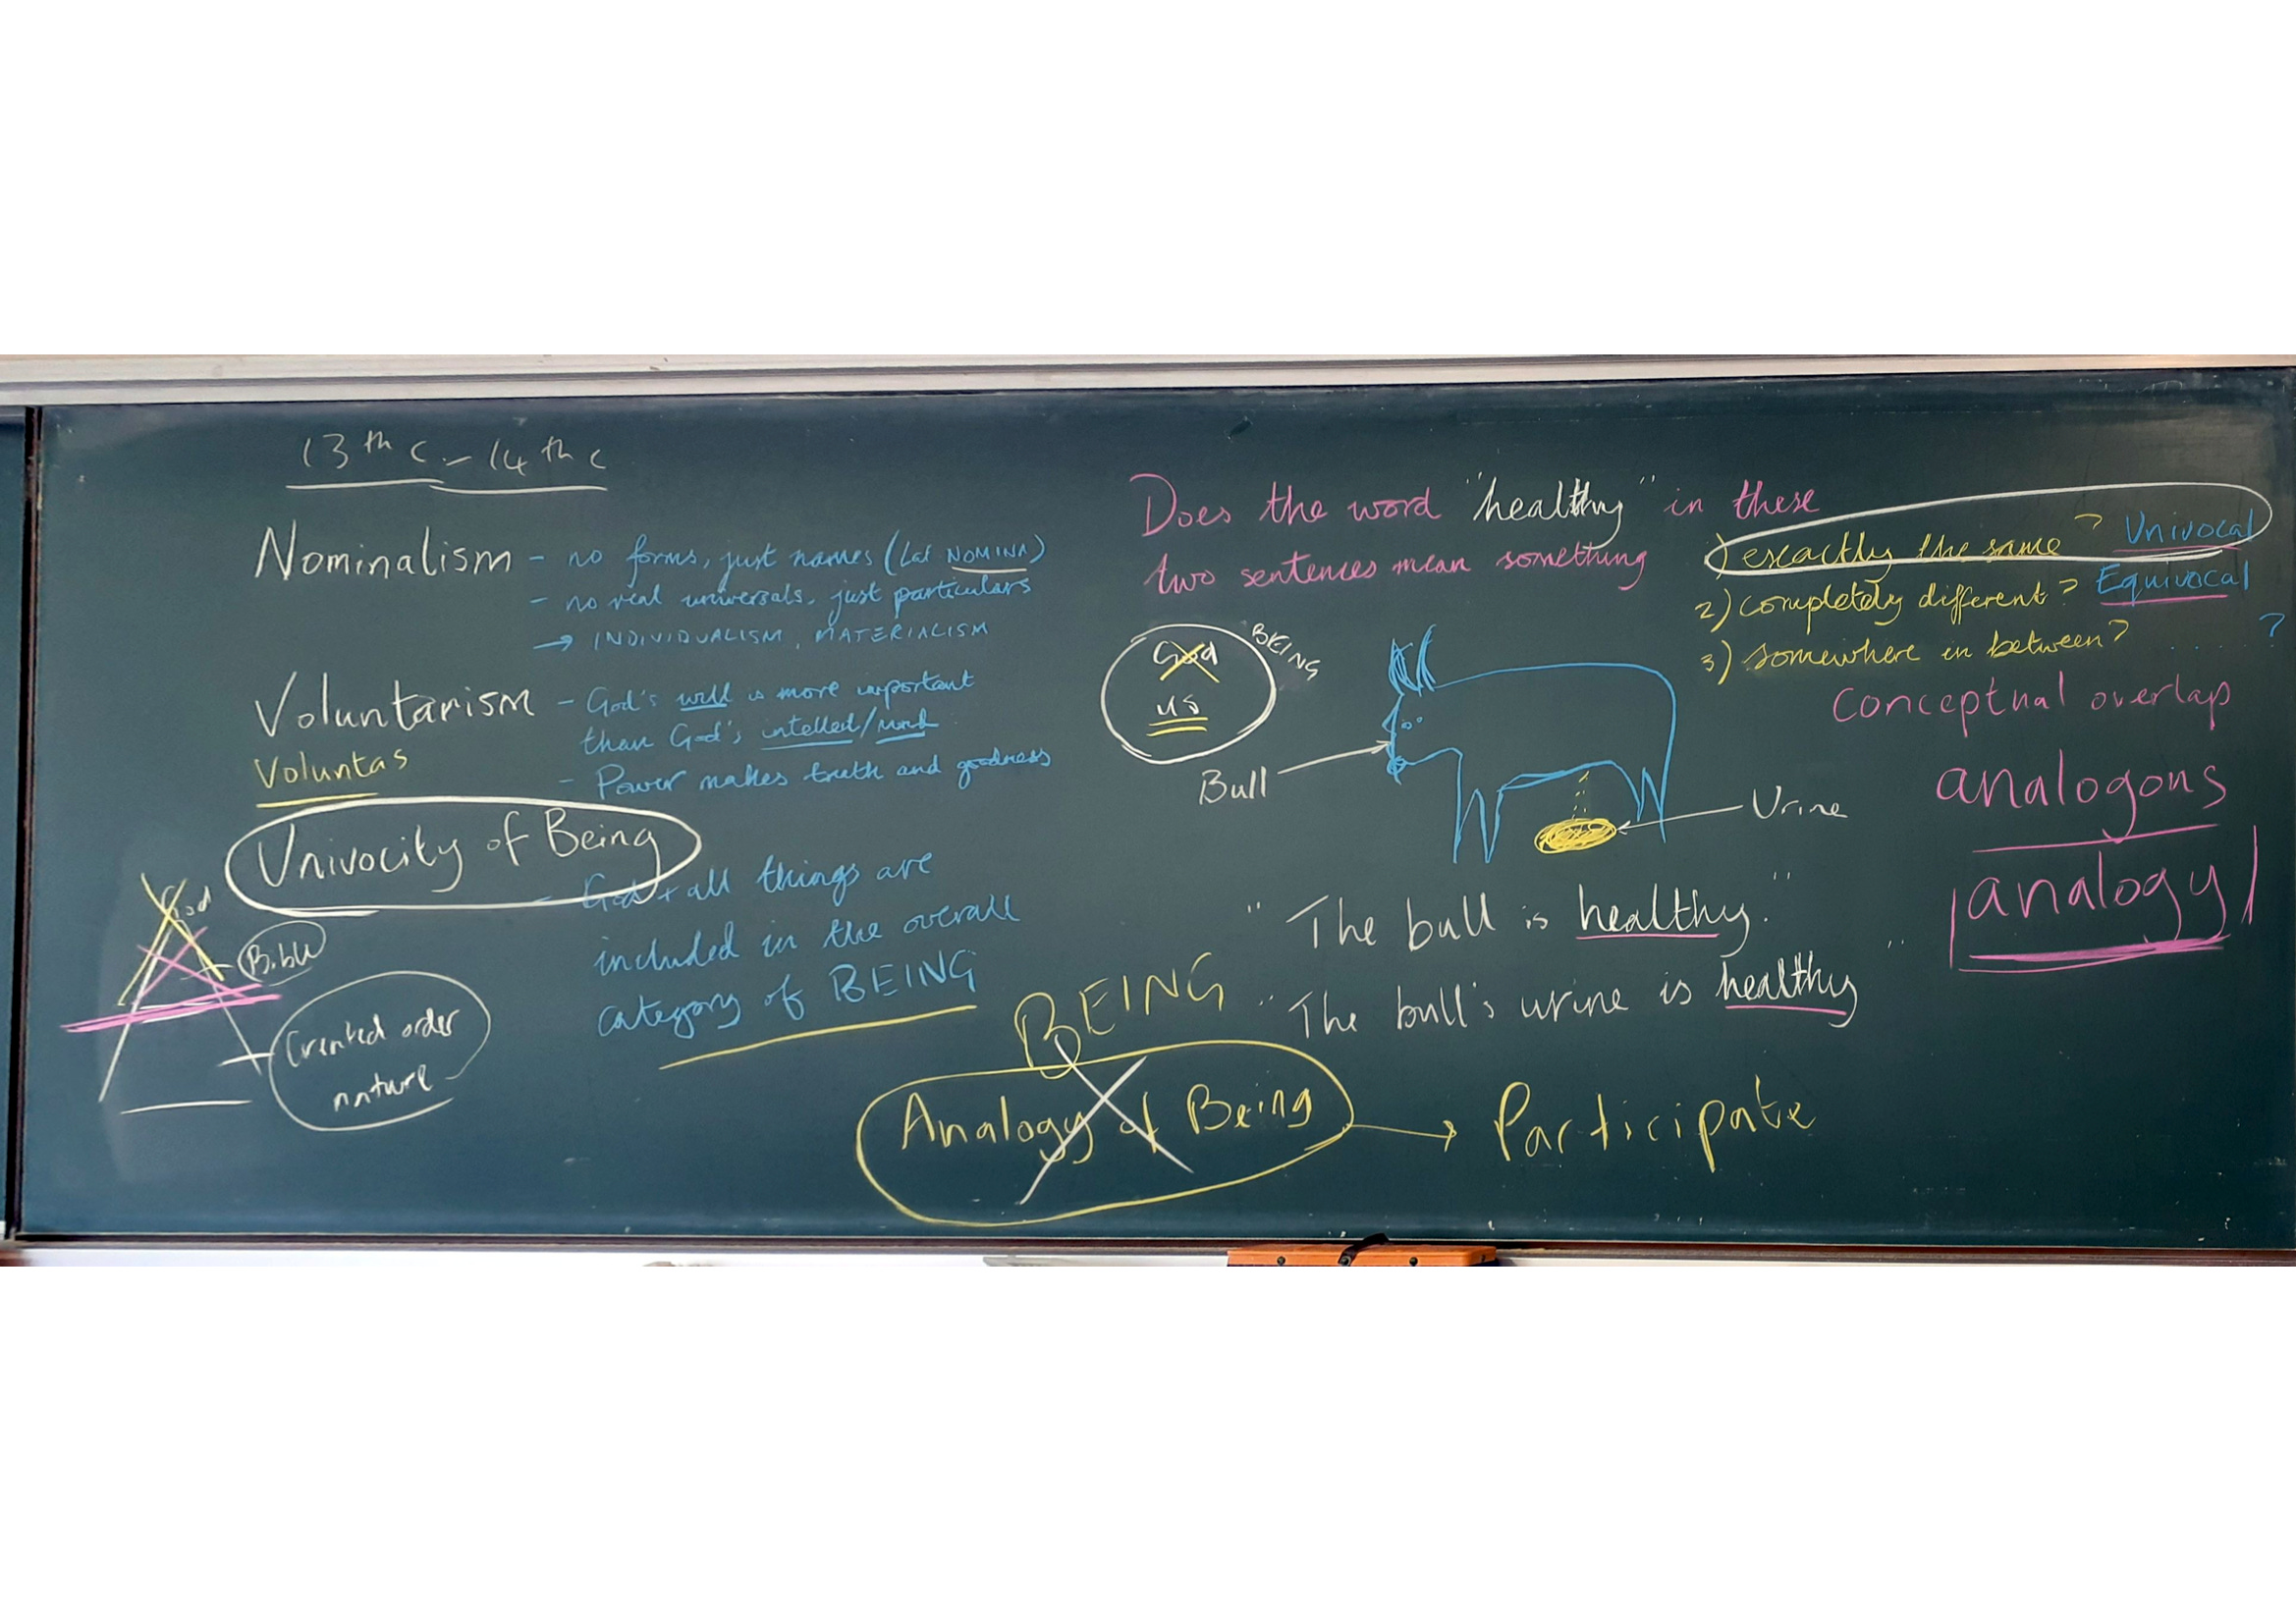 13th c – 14th c
Nominalism - no forms, just names (Lat NOMINA)
- no real universals, just particulars
→ INDIVIDUALISM, MATERIALISM
Voluntarism - God's will is more important
than God's intellect/mind
Voluntas
- Power makes truth and goodness
Univocity of Being
- God + all things are
included in the overall
category of BEING
God
Bible
Created order
nature
Does the word "healthy" in these
two sentences mean something
1) exactly the same? Univocal
2) completely different? Equivocal
3) somewhere in between? ..... ?
conceptual overlap
analogous
analogy
God
us
BEING
Bull
Urine
"The bull is healthy."
"The bull's urine is healthy"
BEING
Analogy of Being → Participate